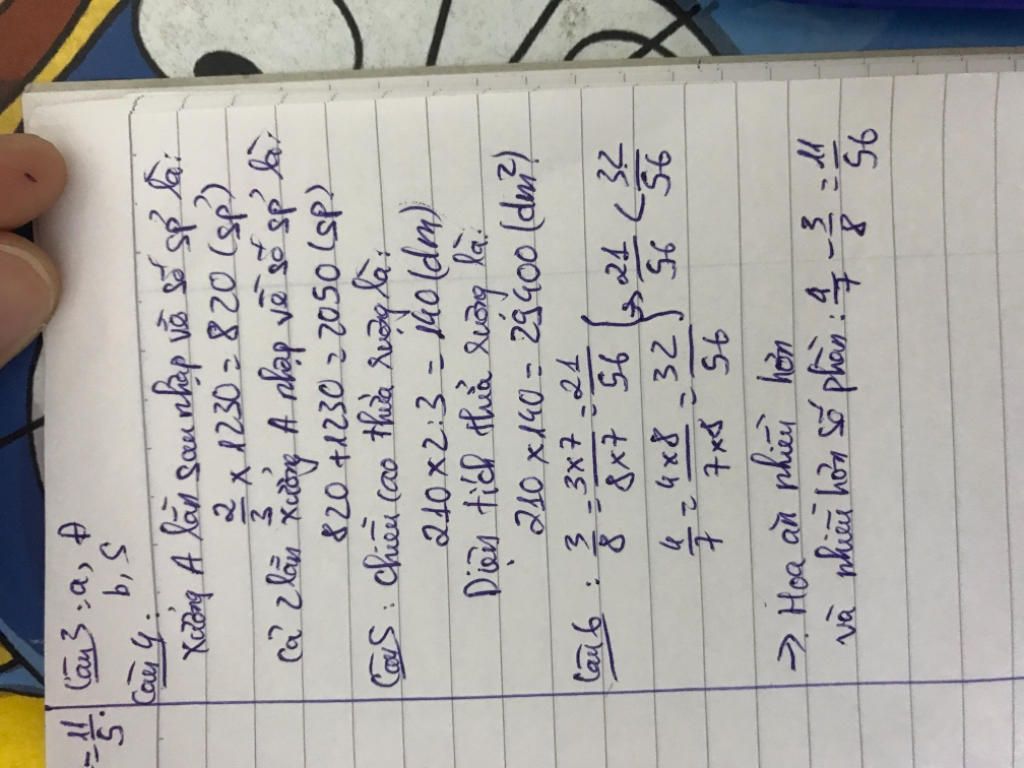 = 11/5.
Câu 3: a, Đ
b, S
Câu 4:
Xưởng A lần sau nhập về số sp là:
2/3 x 1230 = 820 (sp)
Cả 2 lần xưởng A nhập về số sp là:
820 + 1230 = 2050 (sp)
Câu 5: Chiều cao thửa ruộng là:
210 x 2 : 3 = 140 (dm)
Diện tích thửa ruộng là:
210 x 140 = 29400 (dm²)
Câu 6: 3/8 = 3x7/8x7 = 21/56 } => 21/56 < 32/56
4/7 = 4x8/7x8 = 32/56
-> Hoa ăn nhiều hơn
và nhiều hơn số phần: 4/7 - 3/8 = 11/56